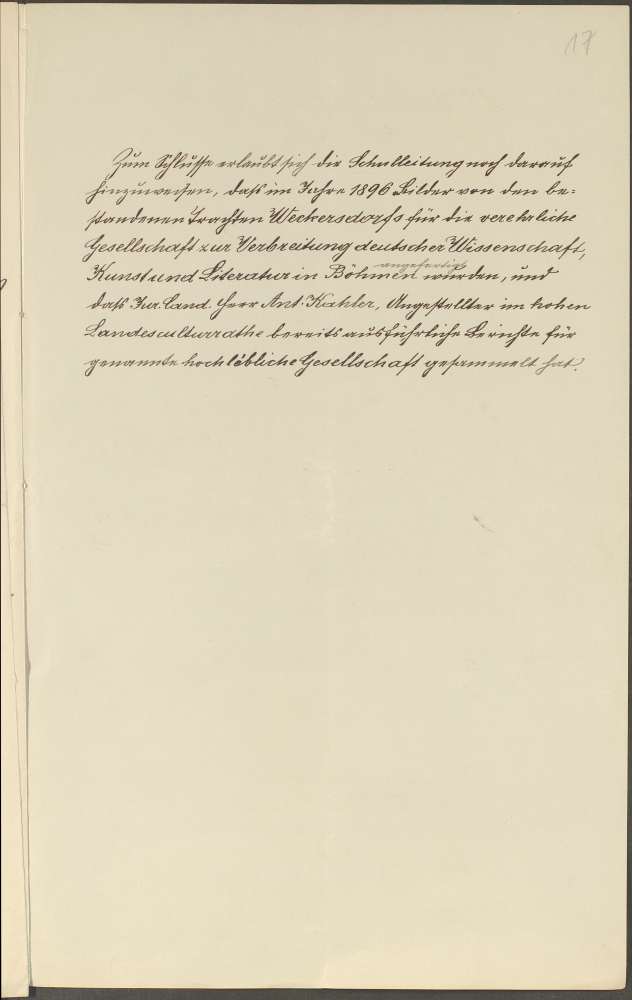 17
Zum Schlusse erlaubt sich die Schulleitung noch darauf
hinzuweisen, daß im Jahre 1896 Bilder von den be=
standenen Trachten Weckersdorfs für die verehrliche
Gesellschaft zur Verbreitung deutscher Wissenschaft,
angefertigt
Kunst und Literatur in Böhmen wurden, und
daß Jur. Cand. Herr Ant. Kahler, Angestellter im hohen
Landesculturrathe bereits ausführliche Berichte für
genannte hochlöbliche Gesellschaft gesammelt hat.